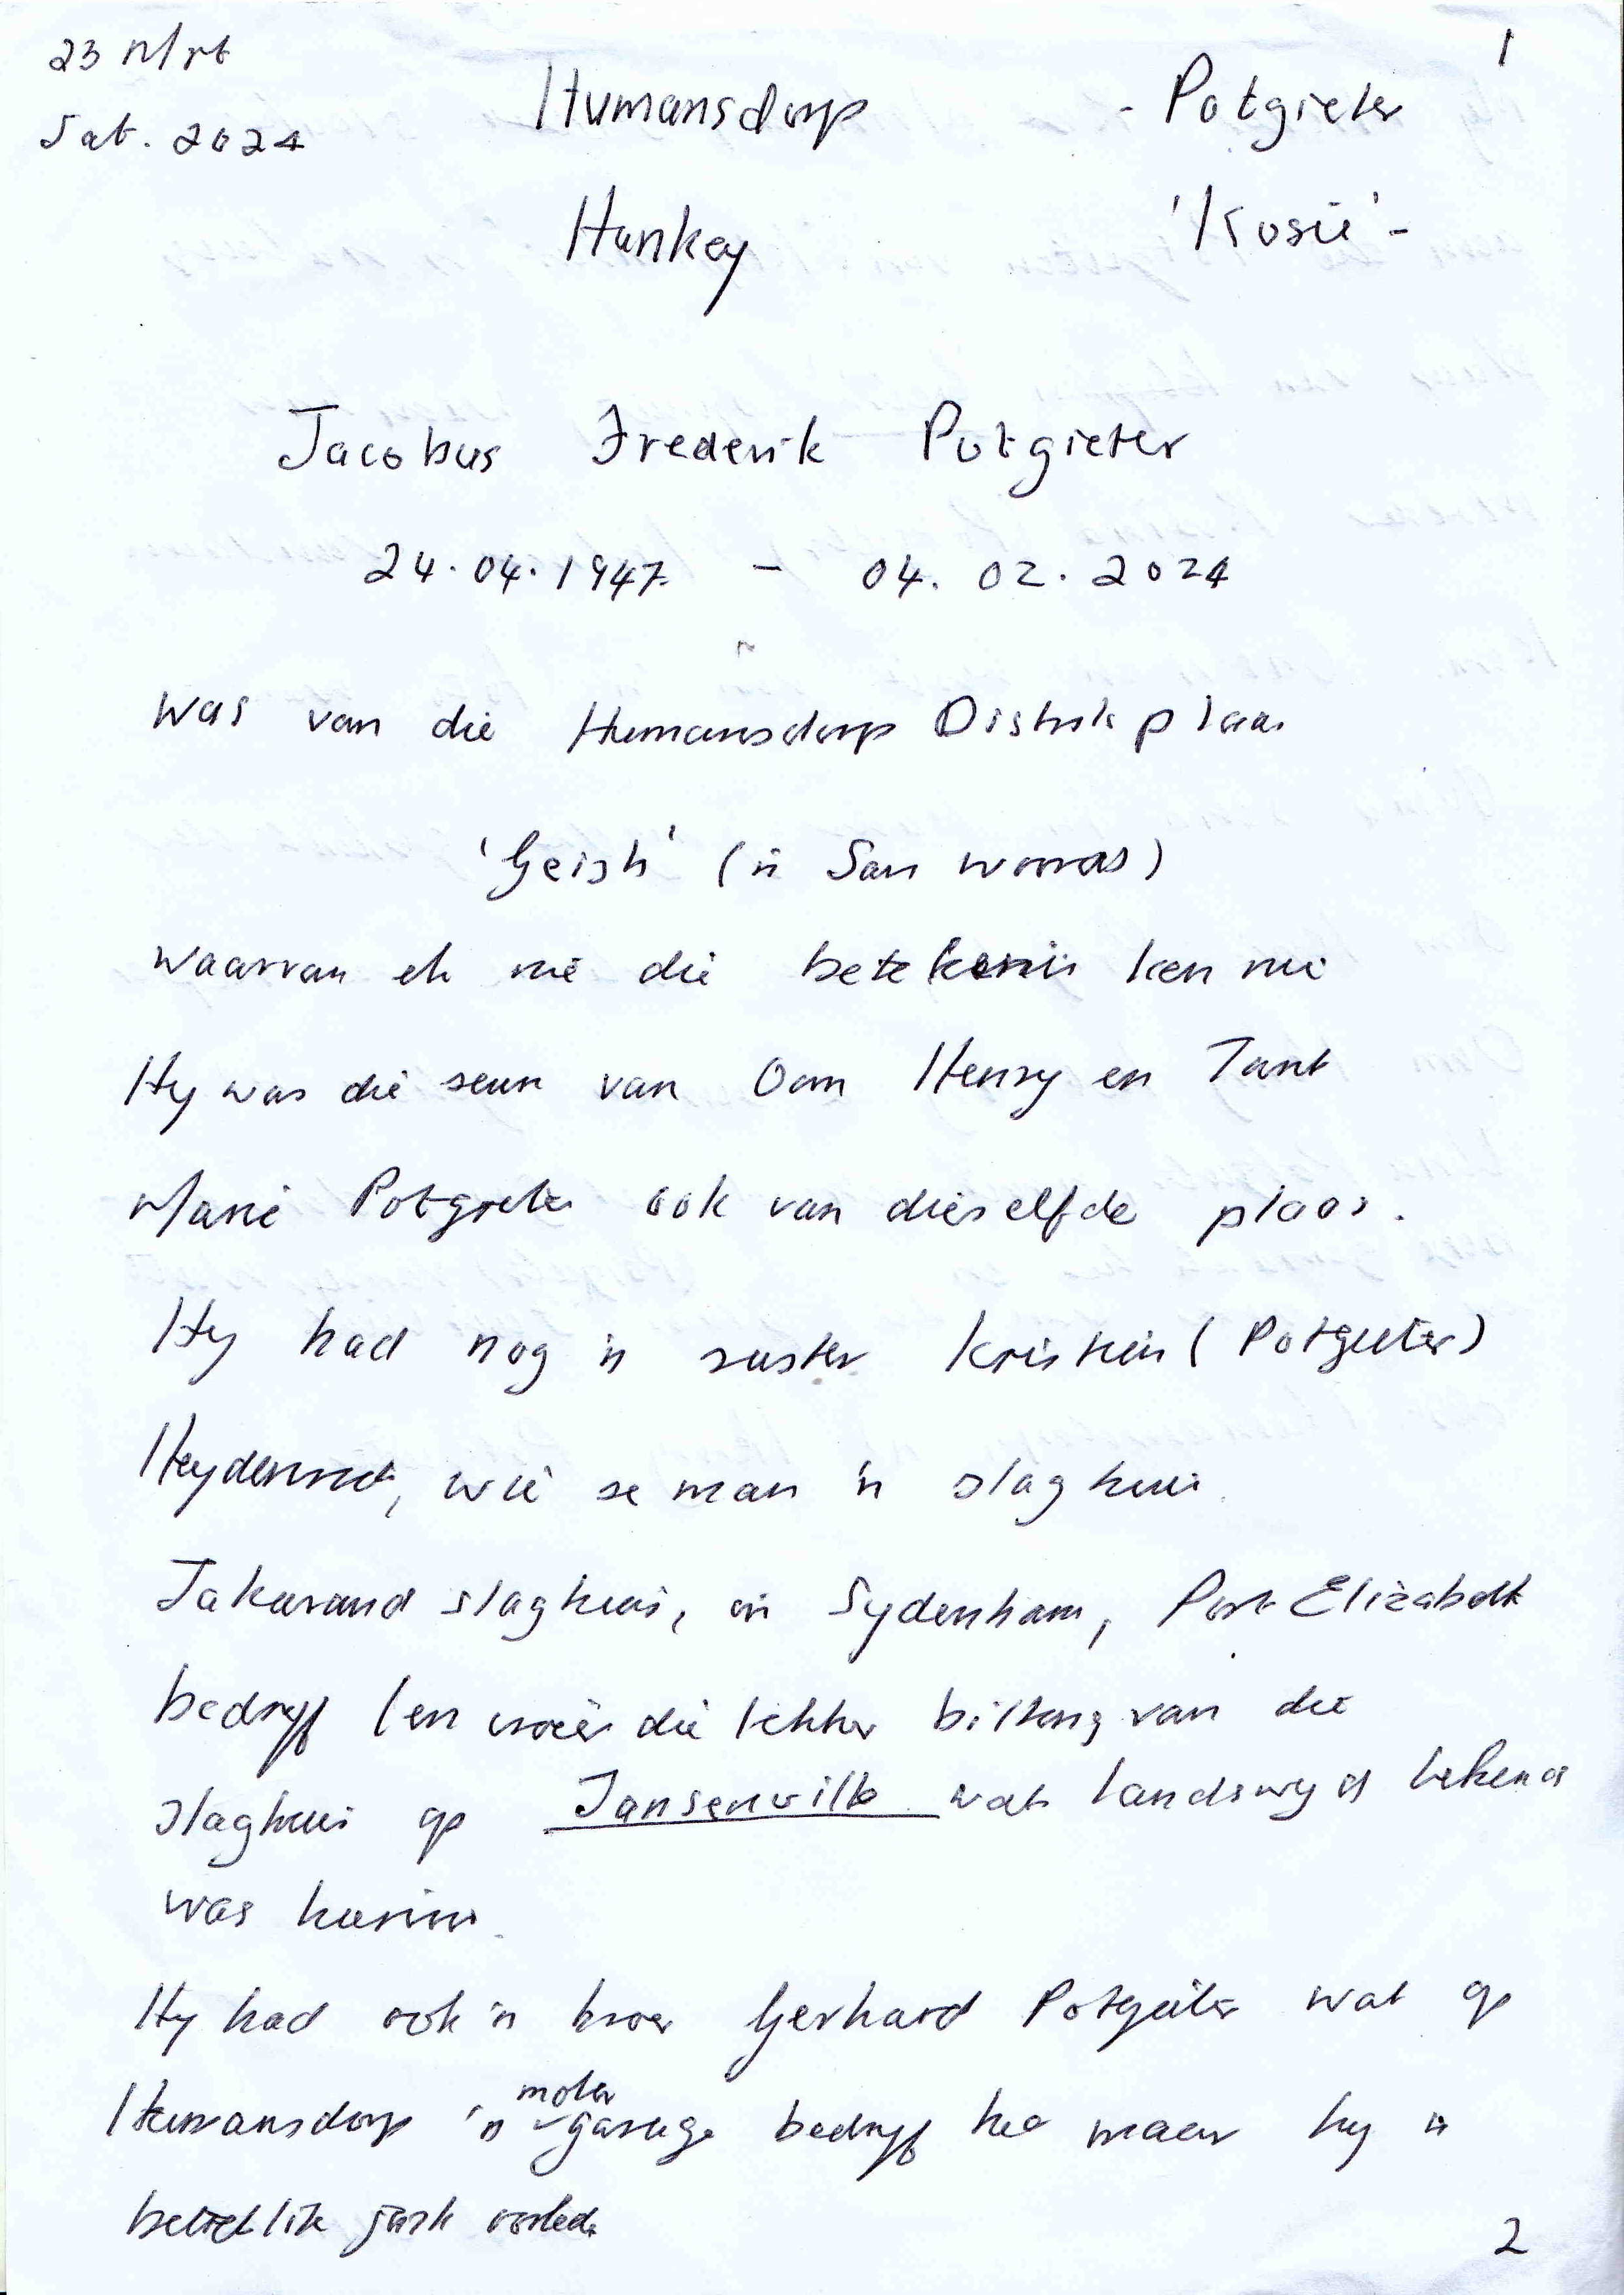 23 Mrt
Sat. 2024
1
Humansdorp - Potgieter
Hankey 'Kosie' -
Jacobus Frederik Potgieter
24.04.1947 - 04.02.2024
Was van die Humansdorp Distrik plaas
'Geish' ('n San woord)
waarvan ek nie die betekenis ken nie
Hy was die seun van Oom Henry en Tant
Marie Potgieter ook van dieselfde plaas.
Hy had nog 'n suster Kristien (Potgieter)
Heydenrich, wie se man 'n slaghuis
Jakarand slaghuis, in Sydenham, Port Elizabeth
bedryf (en die lekker biltong van die
slaghuis op Jansenville wat landswyd bekend
was
Hy had ook 'n broer Gerhard Potgieter wat op
Humansdorp 'n motor garage bedryf het maar hy is
betreklik jonk oorlede
2